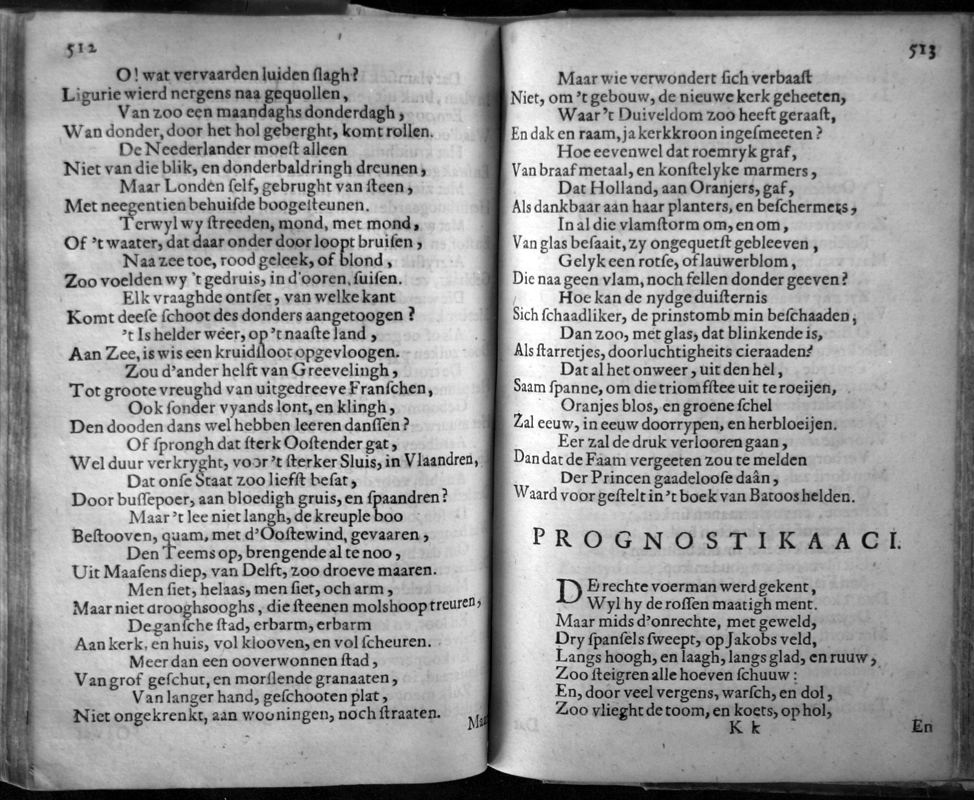 512
O! wat vervaarden luiden ſlagh?
Ligurie wierd nergens naa gequollen,
Van zoo een maandaghs donderdagh,
Wan donder, door het hol geberght, komt rollen.
De Neederlander moeſt alleen
Niet van die blik, en donderbaldringh dreunen,
Maar Londen ſelf, gebrught van ſteen,
Met neegentien behuiſde boogeſteunen.
Terwyl wy ſtreeden, mond, met mond,
Of 't waater, dat daar onder door loopt bruiſen,
Naa zee toe, rood geleek, of blond,
Zoo voelden wy 't gedruis, in d'ooren, ſuiſen.
Elk vraaghde ontſet, van welke kant
Komt deeſe ſchoot des donders aangetoogen?
't Is helder weer, op 't naaſte land,
Aan Zee, is wis een kruidſloot opgevloogen.
Zou d'ander helft van Greevelingh,
Tot groote vreughd van uitgedreeve Franſchen,
Ook ſonder vyands lont, en klingh,
Den dooden dans wel hebben leeren danſſen?
Of ſprongh dat ſterk Ooſtender gat,
Wel duur verkryght, voor 't ſterker Sluis, in Vlaandren,
Dat onſe Staat zoo liefſt beſat,
Door buſſepoer, aan bloedigh gruis, en ſpaandren?
Maar 't lee niet langh, de kreuple boo
Beſtooven, quam, met d'Ooſtewind, gevaaren,
Den Teems op, brengende al te noo,
Uit Maaſens diep, van Delft, zoo droeve maaren.
Men ſiet, helaas, men ſiet, och arm,
Maar niet drooghsooghs, die ſteenen molshoop treuren,
De ganſche ſtad, erbarm, erbarm
Aan kerk, en huis, vol klooven, en vol ſcheuren.
Meer dan een ooverwonnen ſtad,
Van grof geſchut, en morſlende granaaten,
Van langer hand, geſchooten plat,
Niet ongekrenkt, aan wooningen, noch ſtraaten.
513
Maar wie verwondert ſich verbaaſt
Niet, om 't gebouw, de nieuwe kerk geheeten,
Waar 't Duiveldom zoo heeft geraaſt,
En dak en raam, ja kerkkroon ingeſmeeten?
Hoe eevenwel dat roemryk graf,
Van braaf metaal, en konſtelyke marmers,
Dat Holland, aan Oranjers, gaf,
Als dankbaar aan haar planters, en beſchermers,
In al die vlamſtorm om, en om,
Van glas beſaait, zy ongequetſt gebleeven,
Gelyk een rotſe, of lauwerblom,
Die naa geen vlam, noch fellen donder geeven?
Hoe kan de nydge duiſternis
Sich ſchaadliker, de prinstomb min beſchaaden,
Dan zoo, met glas, dat blinkende is,
Als ſtarretjes, doorluchtigheits cieraaden?
Dat al het onweer, uit den hel,
Saam ſpanne, om die triomfſtee uit te roeijen,
Oranjes blos, en groene ſchel
Zal eeuw, in eeuw doorrypen, en herbloeijen.
Eer zal de druk verlooren gaan,
Dan dat de Faam vergeeten zou te melden
Der Princen gaadelooſe daân,
Waard voor geſtelt in 't boek van Batoos helden.
PROGNOSTIKAACI.
DE rechte voerman werd gekent,
Wyl hy de roſſen maatigh ment.
Maar mids d'onrechte, met geweld,
Dry ſpanſels ſweept, op Jakobs veld,
Langs hoogh, en laagh, langs glad, en ruuw,
Zoo ſteigren alle hoeven ſchuuw:
En, door veel vergens, warſch, en dol,
Zoo vlieght de toom, en koets, op hol,
K k
En